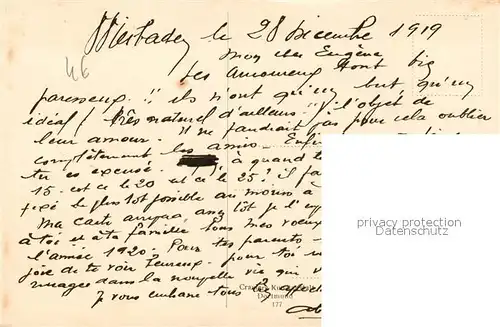 Wiesbaden le 28 Décembre 1919
46
Mon cher Eugène
Les Amoureux sont bien
paresseux !! ils n'ont qu'un but, qu'un
idéal (très naturel d'ailleurs) l'objet de
leur amour. Il ne faudrait pas pour cela oublier
complètement les amis. Enfin
tu es excusé. à quand
15. est ce le 20 est ce le 25? il
fixé le plus tôt possible au moins à
Ma carte
à toi et à ta famille tous mes voeux
l'année 1920. Pour tes parents
joie de te voir heureux. pour toi
dans la nouvelle vie qui
Je vous embrasse tous
privacy protection
Datenschutz
Dortmund
177